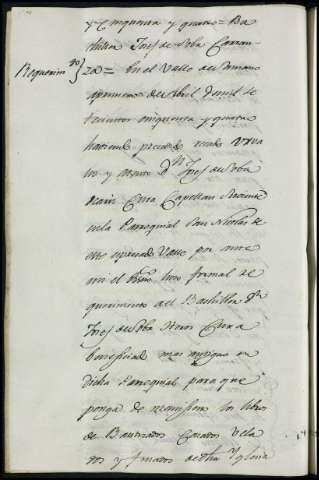 y Cinquenta y quatro = Ba
chiller Josef de Soba Carran
Requerim.to } za = En el Valle de
primero de Abril de mil se
tecientos cinquenta y quatro
haviendo precedido recado
y atento D.n Josef de Soba
Cura Capellan
en la Parroquial San Nicolas de
este Valle por ante
mi el hizo formal re
querimiento a el Bachiller D.n
Josef de Soba Cura
beneficiado mas antiguo en
dicha Parroquial para que
ponga de manifiesto los libros
de Bauptizados Casados Vela
dos y finados de dha Yglesia